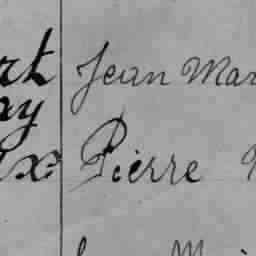 rt Jean Mar
ay
x: Pierre